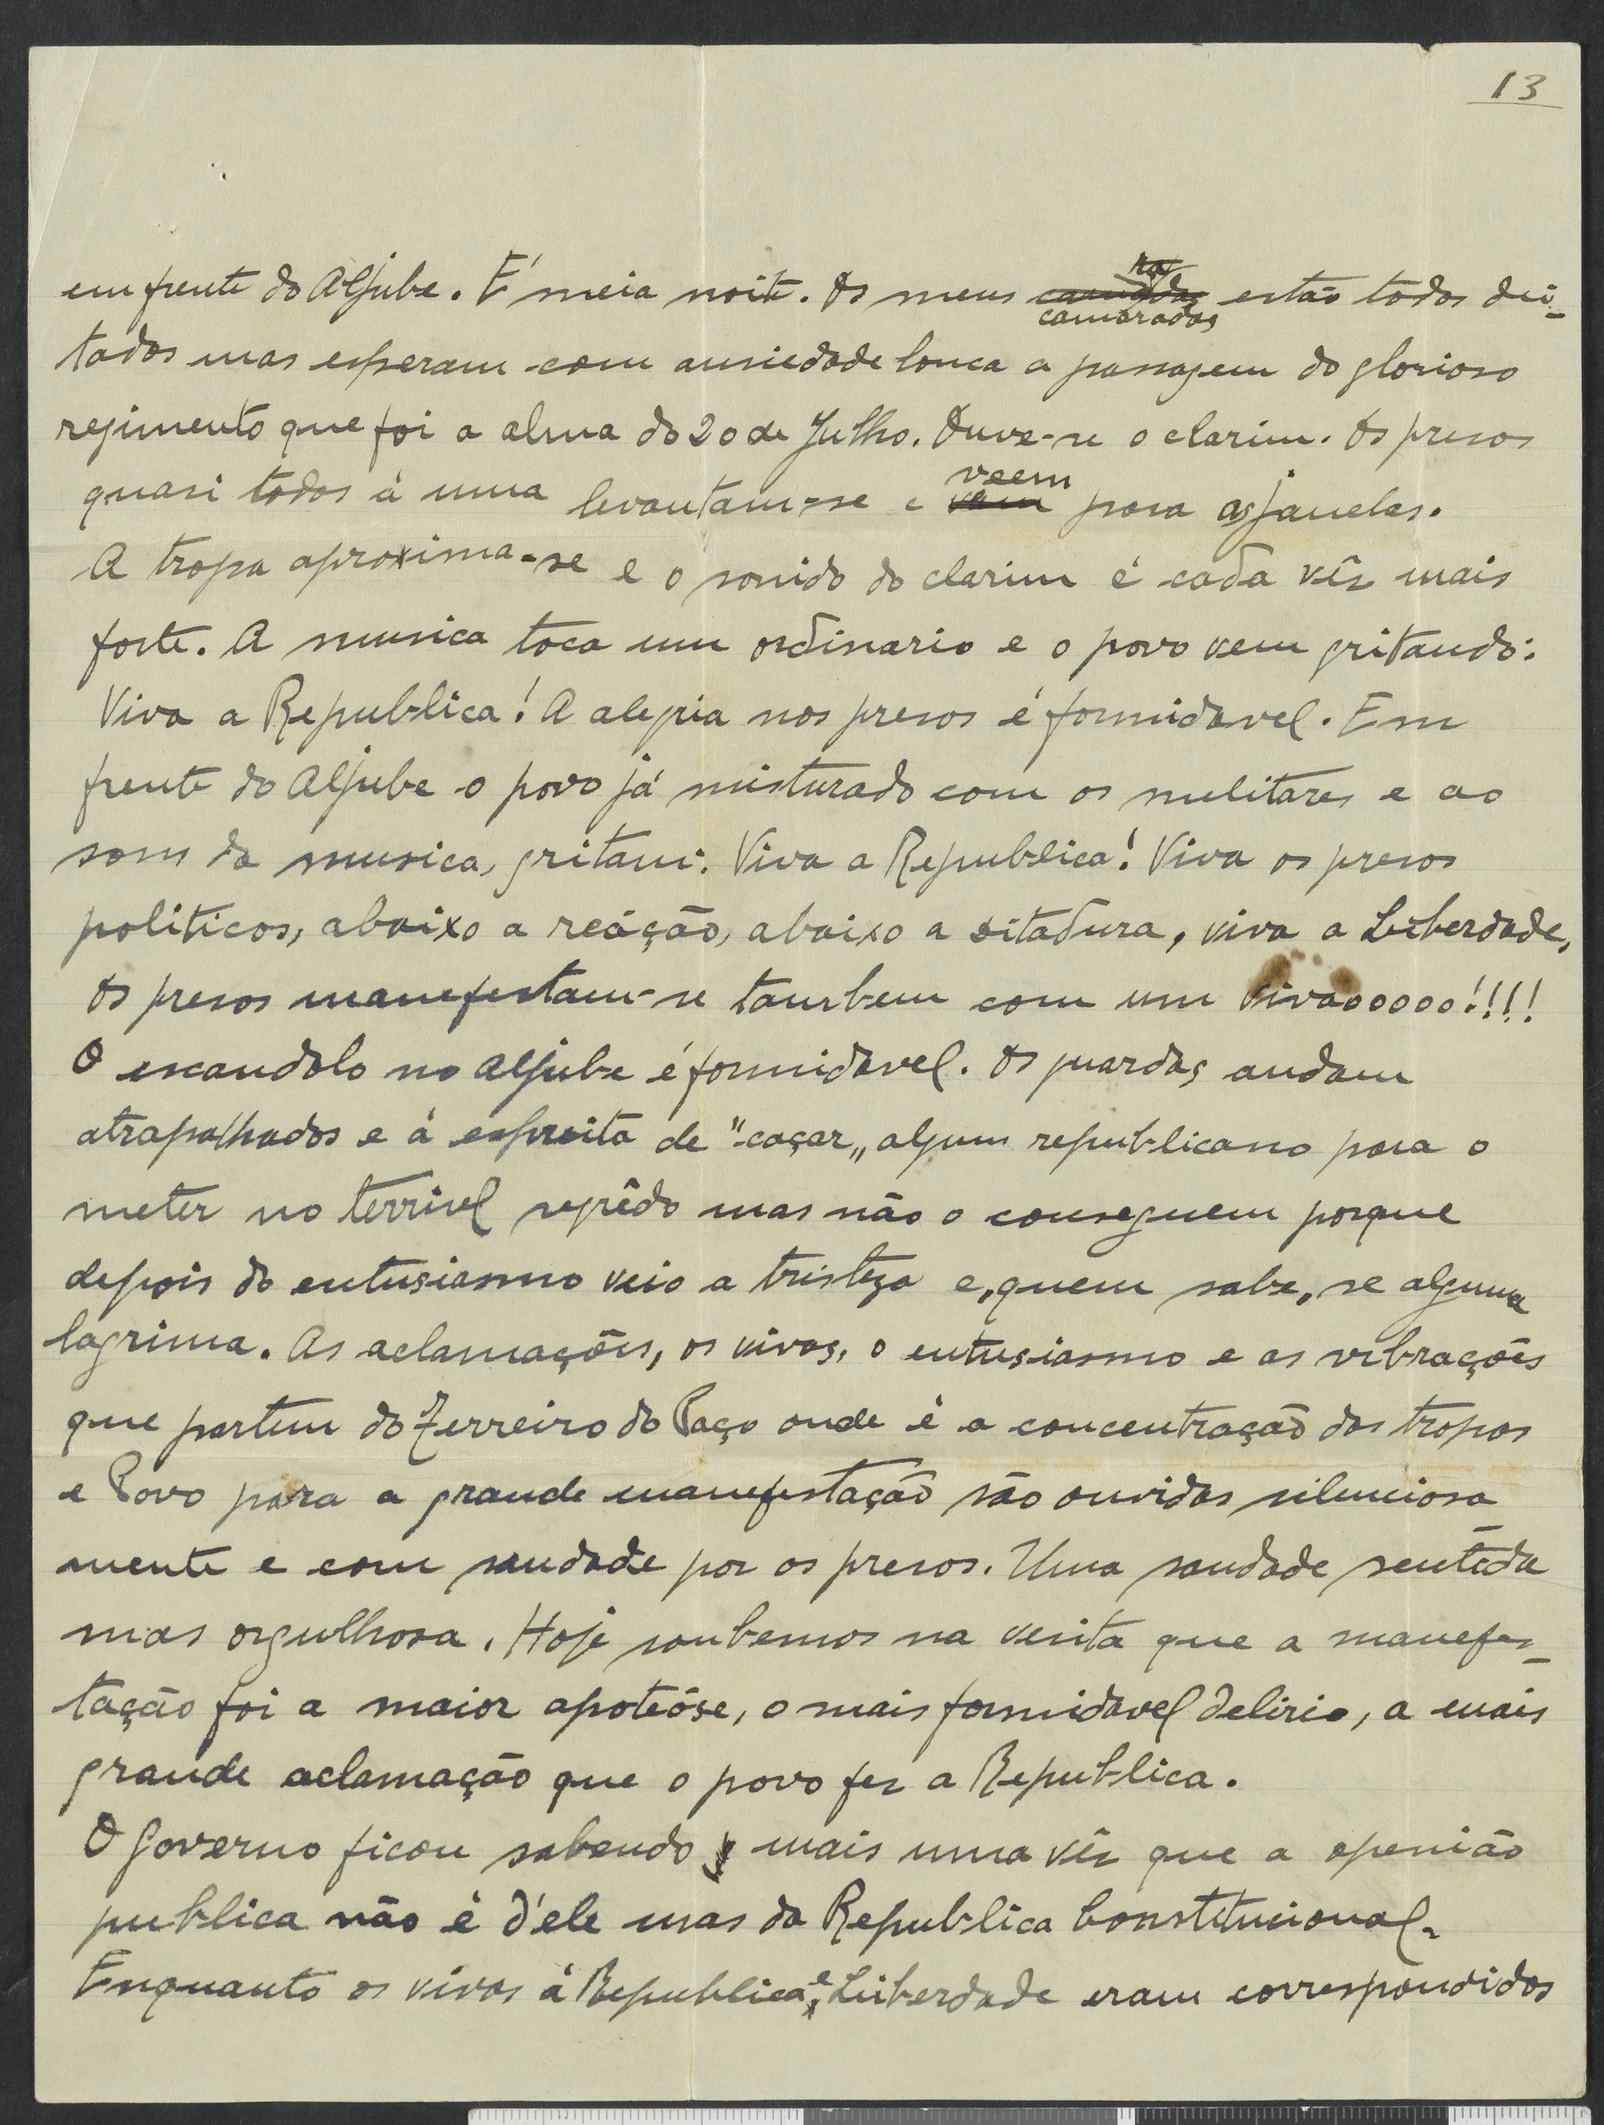 13
em frente do Aljube. É meia noite. Os meus camaradas estão todos dei-
tados mas esperam com ansiedade louca a passagem do glorioso
regimento que foi a alma do 20 de Julho. Ouve-se o clarim. Os presos
quasi todos á uma levantam-se e veem para as janelas.
A tropa aproxima-se e o sonido do clarim é cada vês mais
forte. A musica toca um ordinario e o povo vem gritando:
Viva a Republica! A alegria nos presos é formidavel. Em
frente do Aljube o povo já misturado com os melitares e ao
som da musica, gritam: Viva a Republica! Viva os presos
politicos, abaixo a reáção, abaixo a ditadura, viva a Liberdade,
Os presos manefestam-se tambem com um vivaooooo!!!!
O escandolo no Aljube é formidavel. Os guardas andam
atrapalhados e á espreita de "caçar„ algum republicano para o
meter no terrivel segrêdo mas não o conseguem porque
depois do entusiasmo veio a tristeza e, quem sabe, se alguma
lagrima. As aclamações, os vivas, o entusiasmo e as vibrações
que partem do Terreiro do Paço onde é a concentração das tropas
e Povo para a grande manefestação são ouvidas silenciosa
mente e com saudade por os presos. Uma saudade sentida
mas orgulhosa. Hoje soubemos na vesita que a manefes-
tação foi a maior apoteóse, o mais formidavel delirio, a mais
grande aclamação que o povo fez a Republica.
O Governo ficou sabendo mais uma vês que a openião
publica não é d'ele mas da Republica Constitucional.
Enquanto os vivas á Republica e Liberdade eram correspondidos